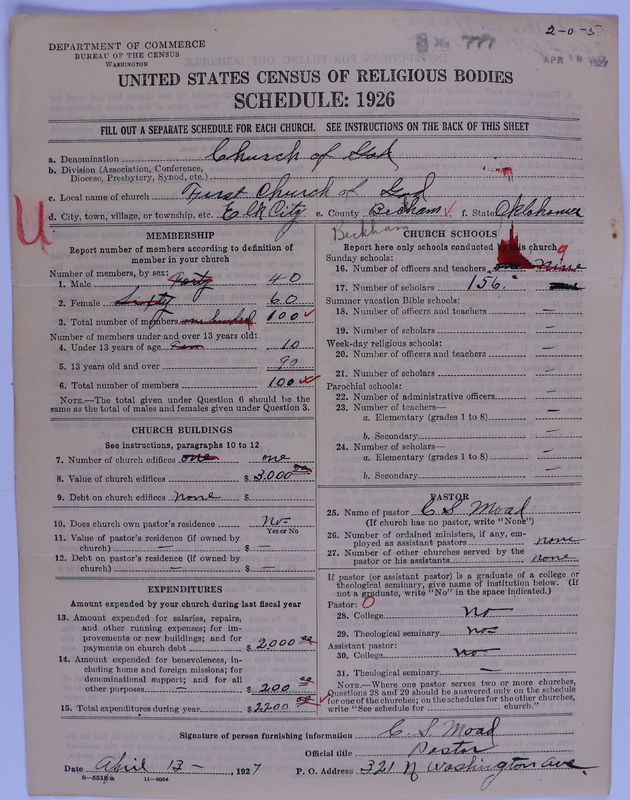 2-0-5
777
DEPARTMENT OF COMMERCE
BUREAU OF THE CENSUS
WASHINGTON
APR 1927
UNITED STATES CENSUS OF RELIGIOUS BODIES
SCHEDULE: 1926
FILL OUT A SEPARATE SCHEDULE FOR EACH CHURCH. SEE INSTRUCTIONS ON THE BACK OF THIS SHEET
a. Denomination Church of God
b. Division (Association, Conference, Diocese, Presbytery, Synod, etc.)
c. Local name of church First Church of God
d. City, town, village, or township, etc. Elk City e. County Beckham f. State Oklahoma
Beckham
U
MEMBERSHIP
Report number of members according to definition of member in your church
Number of members, by sex:
1. Male Forty 40
2. Female Sixty 60
3. Total number of members one hundred 100
Number of members under and over 13 years old:
4. Under 13 years of age Ten 10
5. 13 years old and over 90
6. Total number of members 100
NOTE.—The total given under Question 6 should be the same as the total of males and females given under Question 3.
CHURCH BUILDINGS
See instructions, paragraphs 10 to 12
7. Number of church edifices one one
8. Value of church edifices $ 3,000 00
9. Debt on church edifices none $
10. Does church own pastor's residence No-
Yes or No
11. Value of pastor's residence (if owned by church) — $ —
12. Debt on pastor's residence (if owned by church) — $ —
EXPENDITURES
Amount expended by your church during last fiscal year
13. Amount expended for salaries, repairs, and other running expenses; for improvements or new buildings; and for payments on church debt $ 2000 00
14. Amount expended for benevolences, including home and foreign missions; for denominational support; and for all other purposes — $ 200 00
15. Total expenditures during year $ 2200 00
CHURCH SCHOOLS
Report here only schools conducted by this church
Sunday schools:
16. Number of officers and teachers nine 9
17. Number of scholars 156.
Summer vacation Bible schools:
18. Number of officers and teachers —
19. Number of scholars —
Week-day religious schools:
20. Number of officers and teachers —
21. Number of scholars —
Parochial schools:
22. Number of administrative officers —
23. Number of teachers—
a. Elementary (grades 1 to 8) —
b. Secondary —
24. Number of scholars—
a. Elementary (grades 1 to 8) —
b. Secondary —
PASTOR
25. Name of pastor C. S. Moad
(If church has no pastor, write "None")
26. Number of ordained ministers, if any, employed as assistant pastors none
27. Number of other churches served by the pastor or his assistants none
If pastor (or assistant pastor) is a graduate of a college or theological seminary, give name of institution below. (If not a graduate, write "No" in the space indicated.)
Pastor: O
28. College no
29. Theological seminary no-
Assistant pastor:
30. College no-
31. Theological seminary —
NOTE.—Where one pastor serves two or more churches, Questions 28 and 29 should be answered only on the schedule for one of the churches; on the schedules for the other churches, write "See schedule for church."
Signature of person furnishing information C. S. Moad
Official title Pastor
Date April 13 -, 1927 P. O. Address 321 N Washington Ave.
8-5519a 11-9034